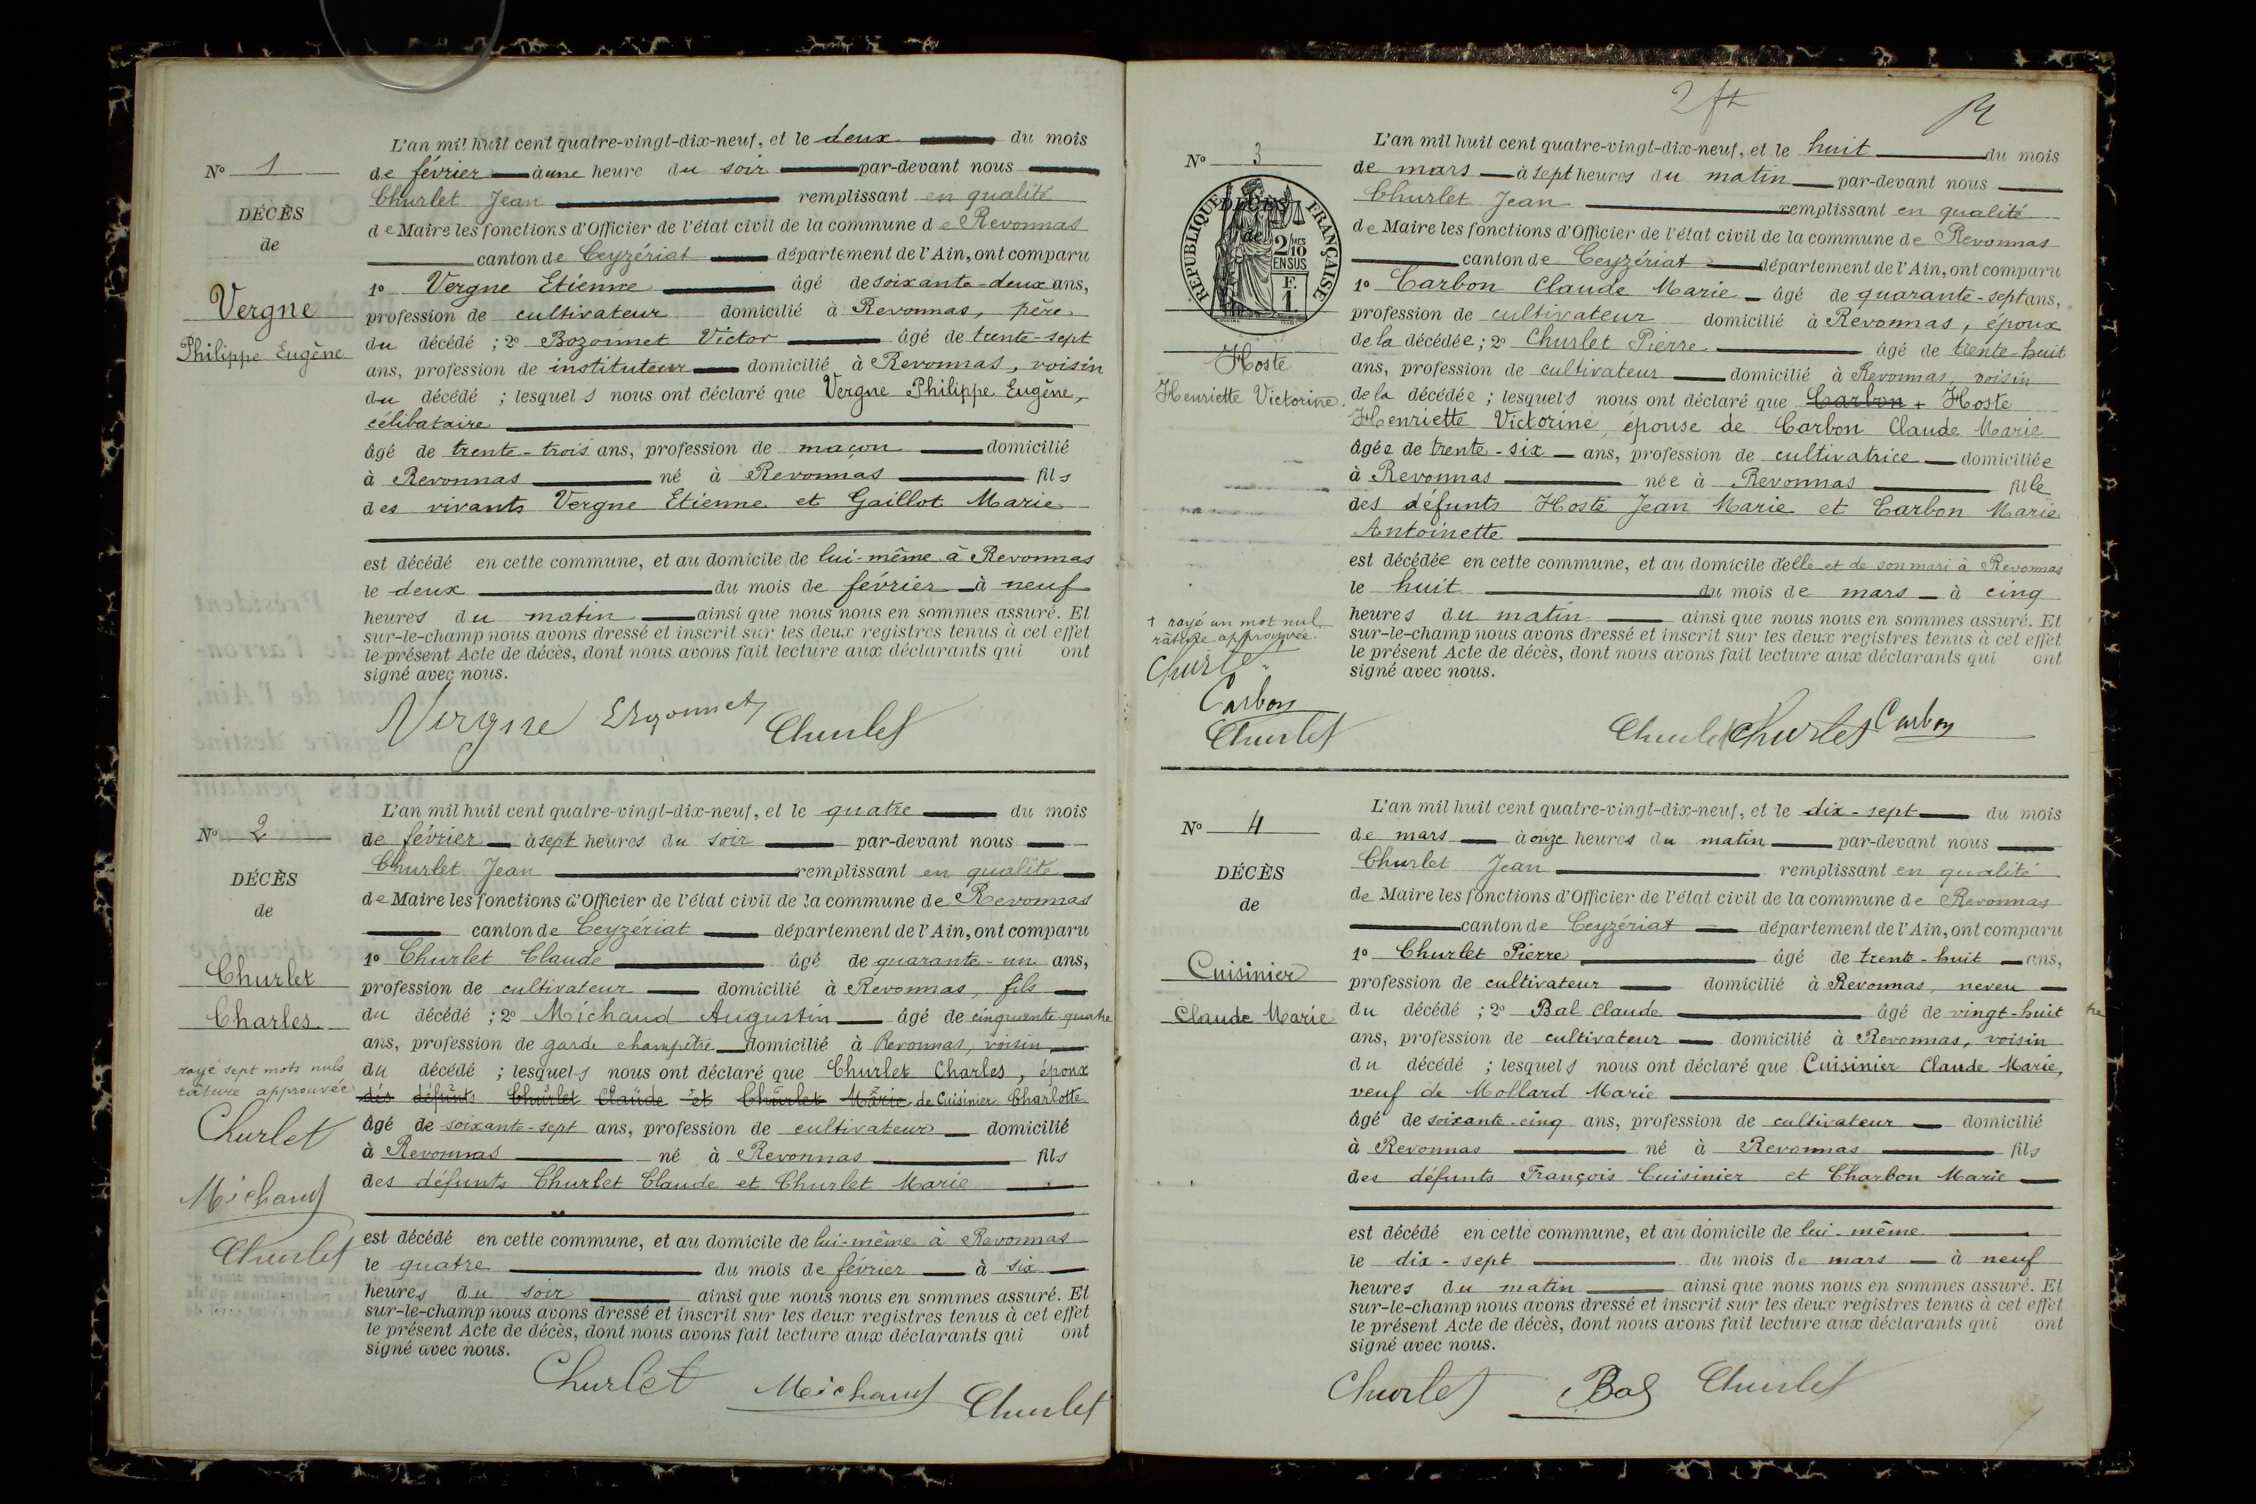 N° 1
DÉCÈS
de
Vergne
Philippe Eugène
L'an mil huit cent quatre-vingt-dix-neuf, et le deux du mois
de février à une heure du soir par-devant nous
Churlet Jean remplissant en qualité
de Maire les fonctions d'Officier de l'état civil de la commune de Revonnas
canton de Ceyzériat département de l'Ain, ont comparu
1° Vergne Etienne âgé de soixante-deux ans,
profession de cultivateur domicilié à Revonnas, père
du décédé ; 2° Bozonnet Victor âgé de trente-sept
ans, profession de instituteur domicilié à Revonnas, voisin
du décédé ; lesquels nous ont déclaré que Vergne Philippe Eugène,
célibataire
âgé de trente-trois ans, profession de maçon domicilié
à Revonnas né à Revonnas fils
des vivants Vergne Etienne et Gaillot Marie
est décédé en cette commune, et au domicile de lui-même à Revonnas
le deux du mois de février à neuf
heures du matin ainsi que nous nous en sommes assuré. Et
sur-le-champ nous avons dressé et inscrit sur les deux registres tenus à cet effet
le présent Acte de décès, dont nous avons fait lecture aux déclarants qui ont
signé avec nous.
Vergne Bozonnet Churlet
N° 2
DÉCÈS
de
Churlet
Charles
rayé sept mots nuls
rature approuvée
Churlet
Michaud
Churlet
L'an mil huit cent quatre-vingt-dix-neuf, et le quatre du mois
de février à sept heures du soir par-devant nous
Churlet Jean remplissant en qualité
de Maire les fonctions d'Officier de l'état civil de la commune de Revonnas
canton de Ceyzériat département de l'Ain, ont comparu
1° Churlet Claude âgé de quarante-un ans,
profession de cultivateur domicilié à Revonnas, fils
du décédé ; 2° Michaud Augustin âgé de cinquante-quatre
ans, profession de garde champêtre domicilié à Revonnas, voisin
du décédé ; lesquels nous ont déclaré que Churlet Charles, époux
des défunts Churlet Claude et Churlet Marie de Cuisinier Charlotte
âgé de soixante-sept ans, profession de cultivateur domicilié
à Revonnas né à Revonnas fils
des défunts Churlet Claude et Churlet Marie
est décédé en cette commune, et au domicile de lui-même à Revonnas
le quatre du mois de février à six
heures du soir ainsi que nous nous en sommes assuré. Et
sur-le-champ nous avons dressé et inscrit sur les deux registres tenus à cet effet
le présent Acte de décès, dont nous avons fait lecture aux déclarants qui ont
signé avec nous.
Churlet Michaud Churlet
N° 3
RÉPUBLIQUE FRANÇAISE
DÉCÈS
de
2/10 MES
EN SUS
F.
1
Hoste
Henriette Victorine
+ rayé un mot nul
rature approuvée.
Churlet
Carbon
Churlet
L'an mil huit cent quatre-vingt-dix-neuf, et le huit du mois
de mars à sept heures du matin par-devant nous
Churlet Jean remplissant en qualité
de Maire les fonctions d'Officier de l'état civil de la commune de Revonnas
canton de Ceyzériat département de l'Ain, ont comparu
1° Carbon Claude Marie âgé de quarante-sept ans,
profession de cultivateur domicilié à Revonnas, époux
de la décédée ; 2° Churlet Pierre âgé de trente-huit
ans, profession de cultivateur domicilié à Revonnas, voisin
de la décédée ; lesquels nous ont déclaré que Carbon + Hoste
Henriette Victorine, épouse de Carbon Claude Marie
âgée de trente-six ans, profession de cultivatrice domiciliée
à Revonnas née à Revonnas fille
des défunts Hoste Jean Marie et Carbon Marie
Antoinette
est décédée en cette commune, et au domicile d'elle et de son mari à Revonnas
le huit du mois de mars à cinq
heures du matin ainsi que nous nous en sommes assuré. Et
sur-le-champ nous avons dressé et inscrit sur les deux registres tenus à cet effet
le présent Acte de décès, dont nous avons fait lecture aux déclarants qui ont
signé avec nous.
Churlet Churlet Carbon
N° 4
DÉCÈS
de
Cuisinier
Claude Marie
L'an mil huit cent quatre-vingt-dix-neuf, et le dix-sept du mois
de mars à onze heures du matin par-devant nous
Churlet Jean remplissant en qualité
de Maire les fonctions d'Officier de l'état civil de la commune de Revonnas
canton de Ceyzériat département de l'Ain, ont comparu
1° Churlet Pierre âgé de trente-huit ans,
profession de cultivateur domicilié à Revonnas, neveu
du décédé ; 2° Bal Claude âgé de vingt-huit
ans, profession de cultivateur domicilié à Revonnas, voisin
du décédé ; lesquels nous ont déclaré que Cuisinier Claude Marie,
veuf de Mollard Marie
âgé de soixante-cinq ans, profession de cultivateur domicilié
à Revonnas né à Revonnas fils
des défunts François Cuisinier et Charbon Marie
est décédé en cette commune, et au domicile de lui-même
le dix-sept du mois de mars à neuf
heures du matin ainsi que nous nous en sommes assuré. Et
sur-le-champ nous avons dressé et inscrit sur les deux registres tenus à cet effet
le présent Acte de décès, dont nous avons fait lecture aux déclarants qui ont
signé avec nous.
Churlet Bal Churlet